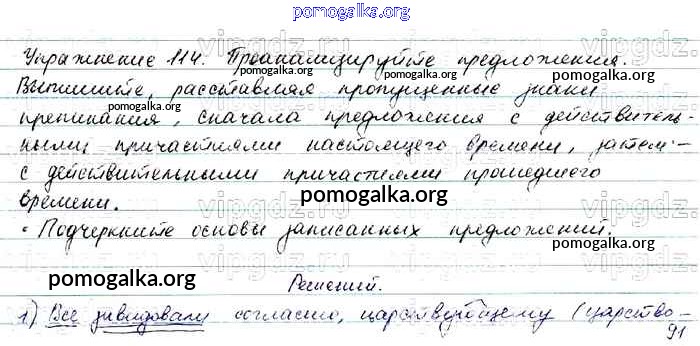 pomogalka.org
Упражнение 114. Проанализируйте предложения.
pomogalka.org
pomogalka.org
Выпишите, расставляя пропущенные знаки
pomogalka.org
препинания, сначала предложения с действитель-
ными причастиями настоящего времени, затем -
pomogalka.org
с действительными причастиями прошедшего
pomogalka.org
времени.
• Подчеркните основы записанных предложений.
pomogalka.org
pomogalka.org
1) Все завидовали согласию, царствующему (царство-
pomogalka.org
91